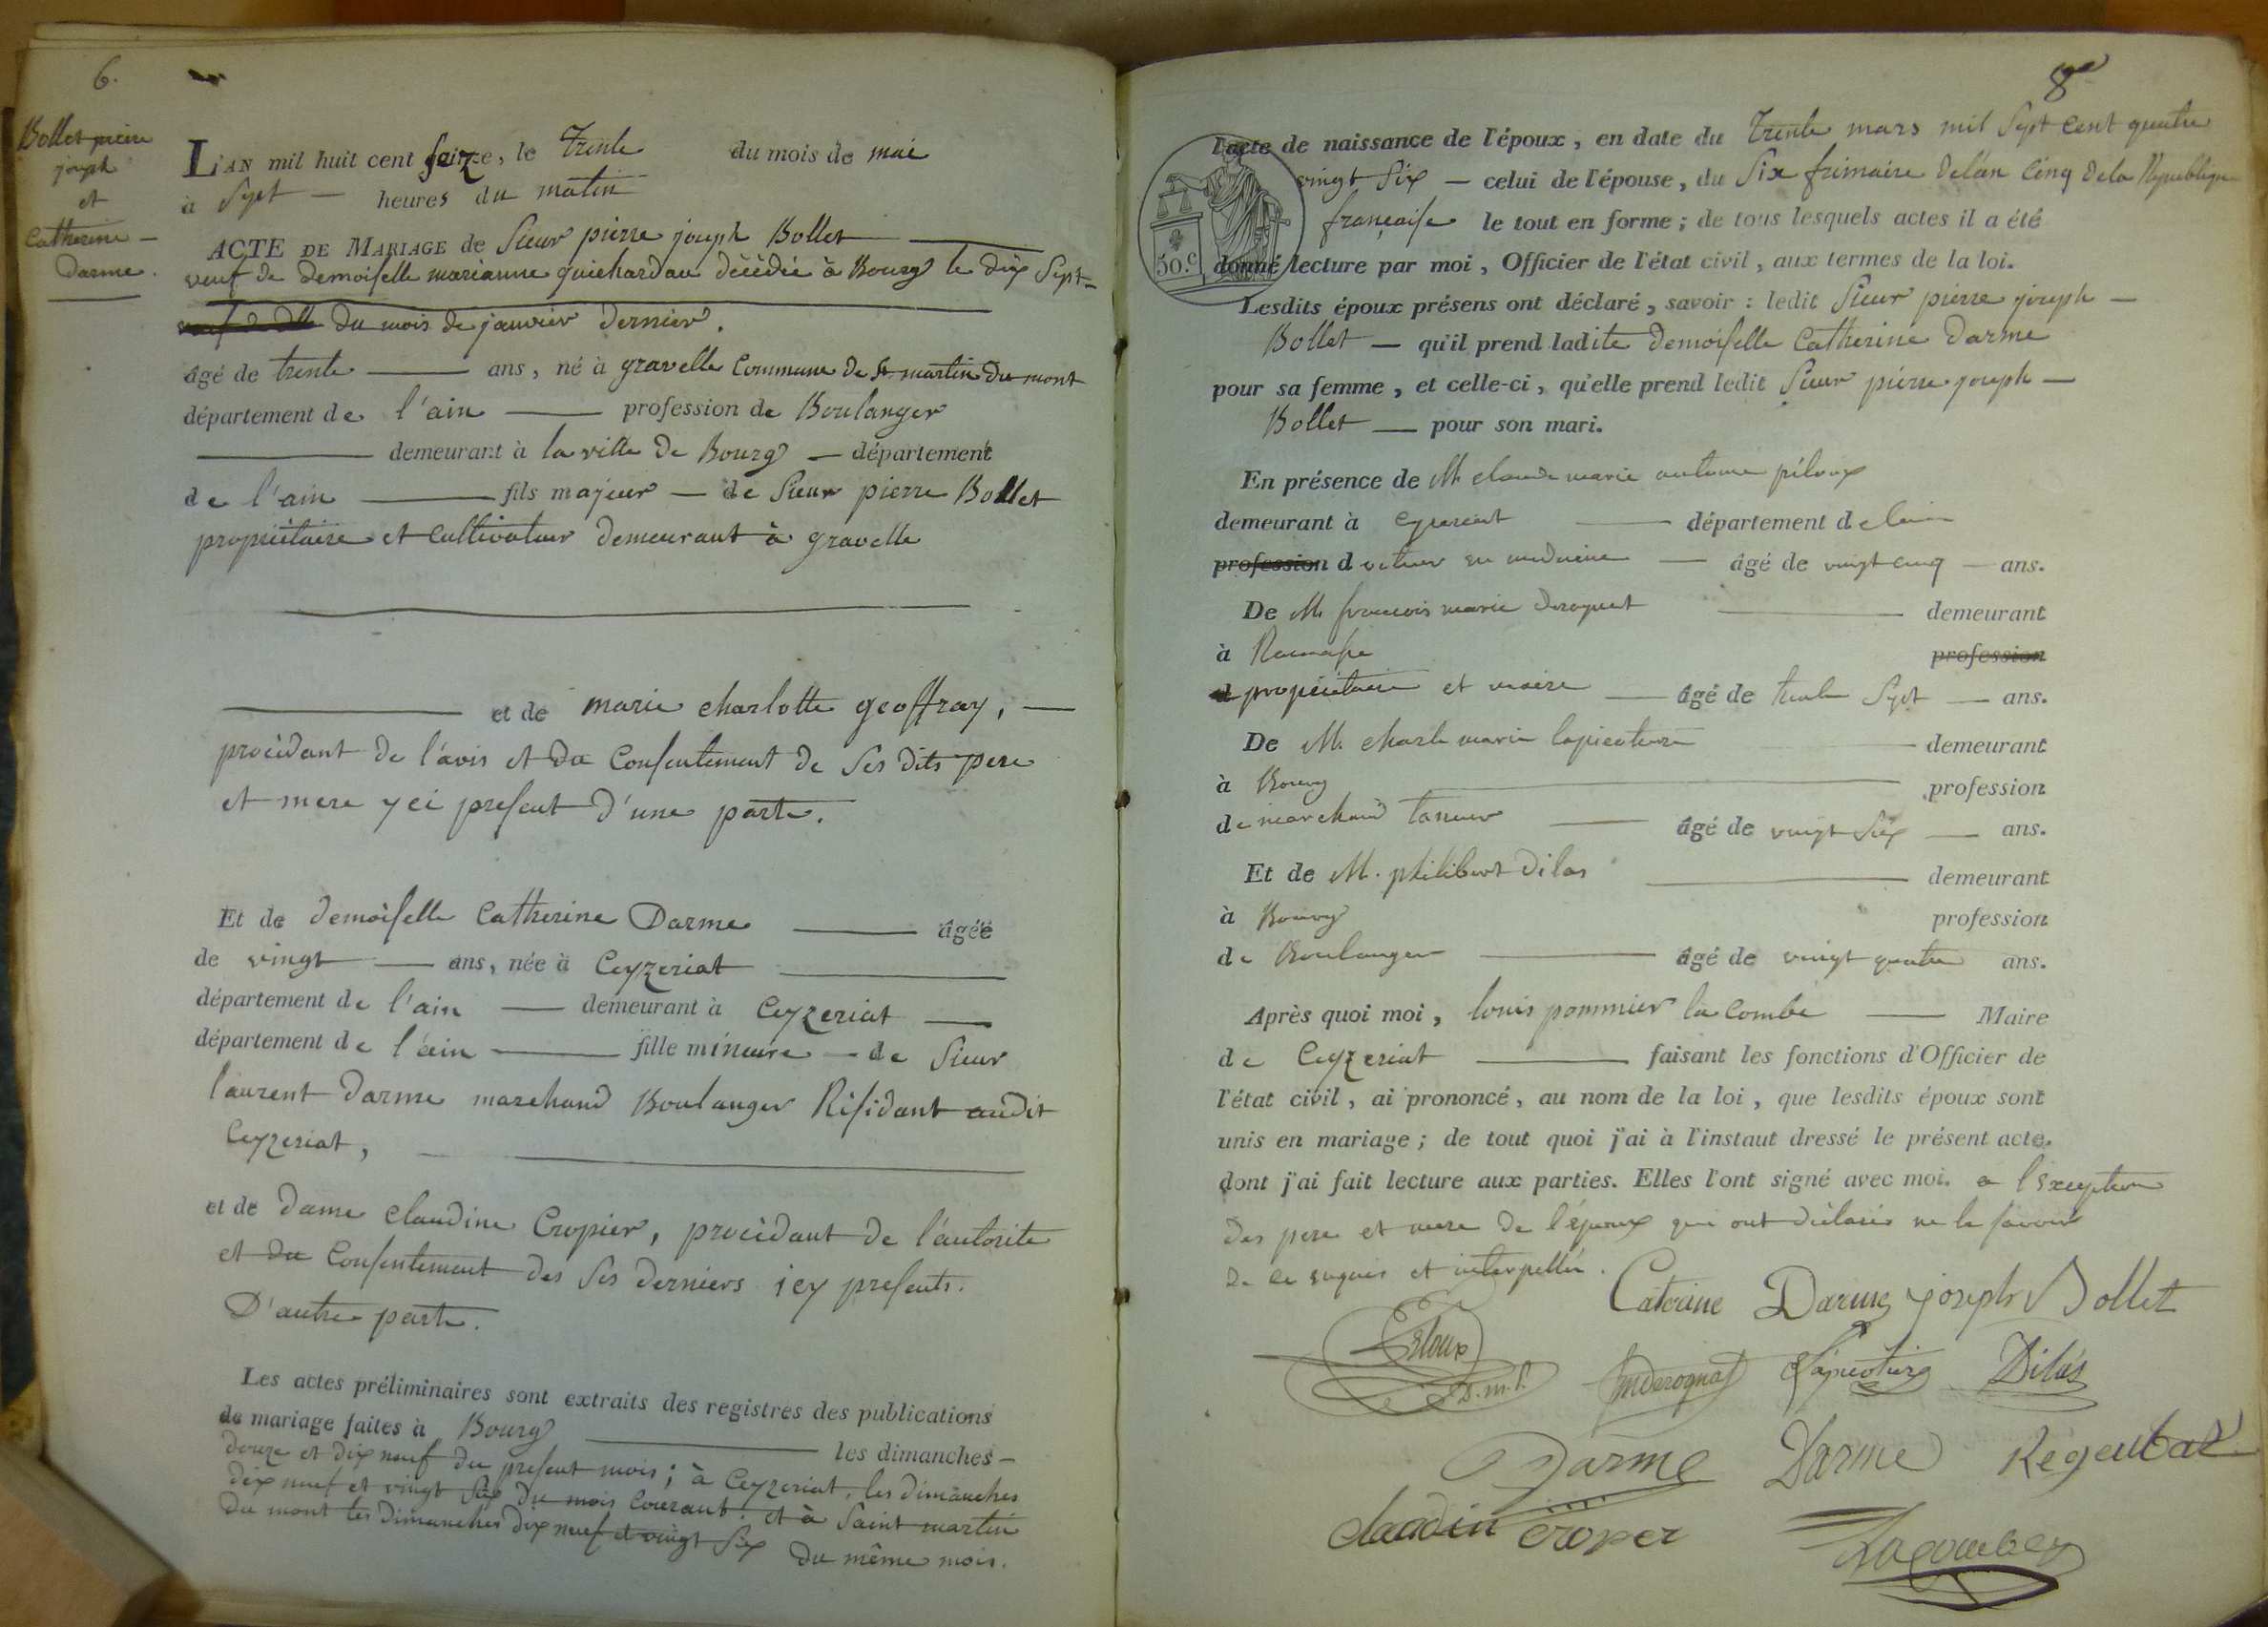 6.
Bollet pierre
joseph
et
Catherine
Darme.
L'AN mil huit cent seize, le trente du mois de mai
à Sept heures du matin
ACTE DE MARIAGE de Sieur pierre joseph Bollet
veuf de demoiselle marianne guichardau décédée à Bourg le dix Sept
du mois de janvier dernier.
âgé de trente ans, né à gravelle Commune de St martin du mont
département de l'ain profession de Boulanger
demeurant à la ville de Bourg département
de l'ain fils majeur de Sieur pierre Bollet
propriétaire et Cultivateur demeurant à gravelle
et de marie charlotte geoffray,
procédant de l'avis et du Consentement de Ses dits pere
et mere yci present d'une parte.
Et de demoiselle Catherine Darme âgée
de vingt ans, née à Ceyzeriat
département de l'ain demeurant à Ceyzeriat
département de l'ain fille mineure de Sieur
laurent Darme marchand Boulanger Résidant audit
Ceyzeriat,
et de dame claudine Cropier, procédant de l'autorite
et du Consentement des Ses derniers icy presents.
D'autre parte.
Les actes préliminaires sont extraits des registres des publications
de mariage faites à Bourg les dimanches
douze et dix neuf du present mois ; à Ceyzeriat, les dimanches
dix neuf et vingt Six du mois Courant. et à Saint martin
du mont les dimanches dix neuf et vingt Six du même mois.
8e
l'acte de naissance de l'époux, en date du trente mars mil Sept Cent quatre
vingt Six celui de l'épouse, du Six frimaire de l'an Cinq de la Republique
française le tout en forme ; de tous lesquels actes il a été
50.c
donné lecture par moi, Officier de l'état civil, aux termes de la loi.
Lesdits époux présens ont déclaré, savoir : ledit Sieur pierre joseph
Bollet qu'il prend ladite demoiselle Catherine Darme
pour sa femme, et celle-ci, qu'elle prend ledit Sieur pierre joseph
Bollet pour son mari.
En présence de M. claude marie antoine péloux
demeurant à Ceyzeriat département de l'ain
profession docteur en medecine âgé de vingt cinq ans.
De M. francois marie derognat demeurant
à profession
propriétaire et maire âgé de trente Sept ans.
De M. charle marie lapicotiere demeurant
à Bourg profession
de marchand taneur âgé de vingt Six ans.
Et de M. philibert dilas demeurant
à Bourg profession
de Boulanger âgé de vingt quatre ans.
Après quoi moi, louis pommier la Combe Maire
de Ceyzeriat faisant les fonctions d'Officier de
l'état civil, ai prononcé, au nom de la loi, que lesdits époux sont
unis en mariage ; de tout quoi j'ai à l'instaut dressé le présent acte.
dont j'ai fait lecture aux parties. Elles l'ont signé avec moi. a l'exception
des pere et mere de l'époux qui ont déclarés ne le savoir
de ce enquis et interpellés.
Caterine Darme joseph Bollet
D.m.P. Dilas
Darme Darme
claudin croper Lacombe